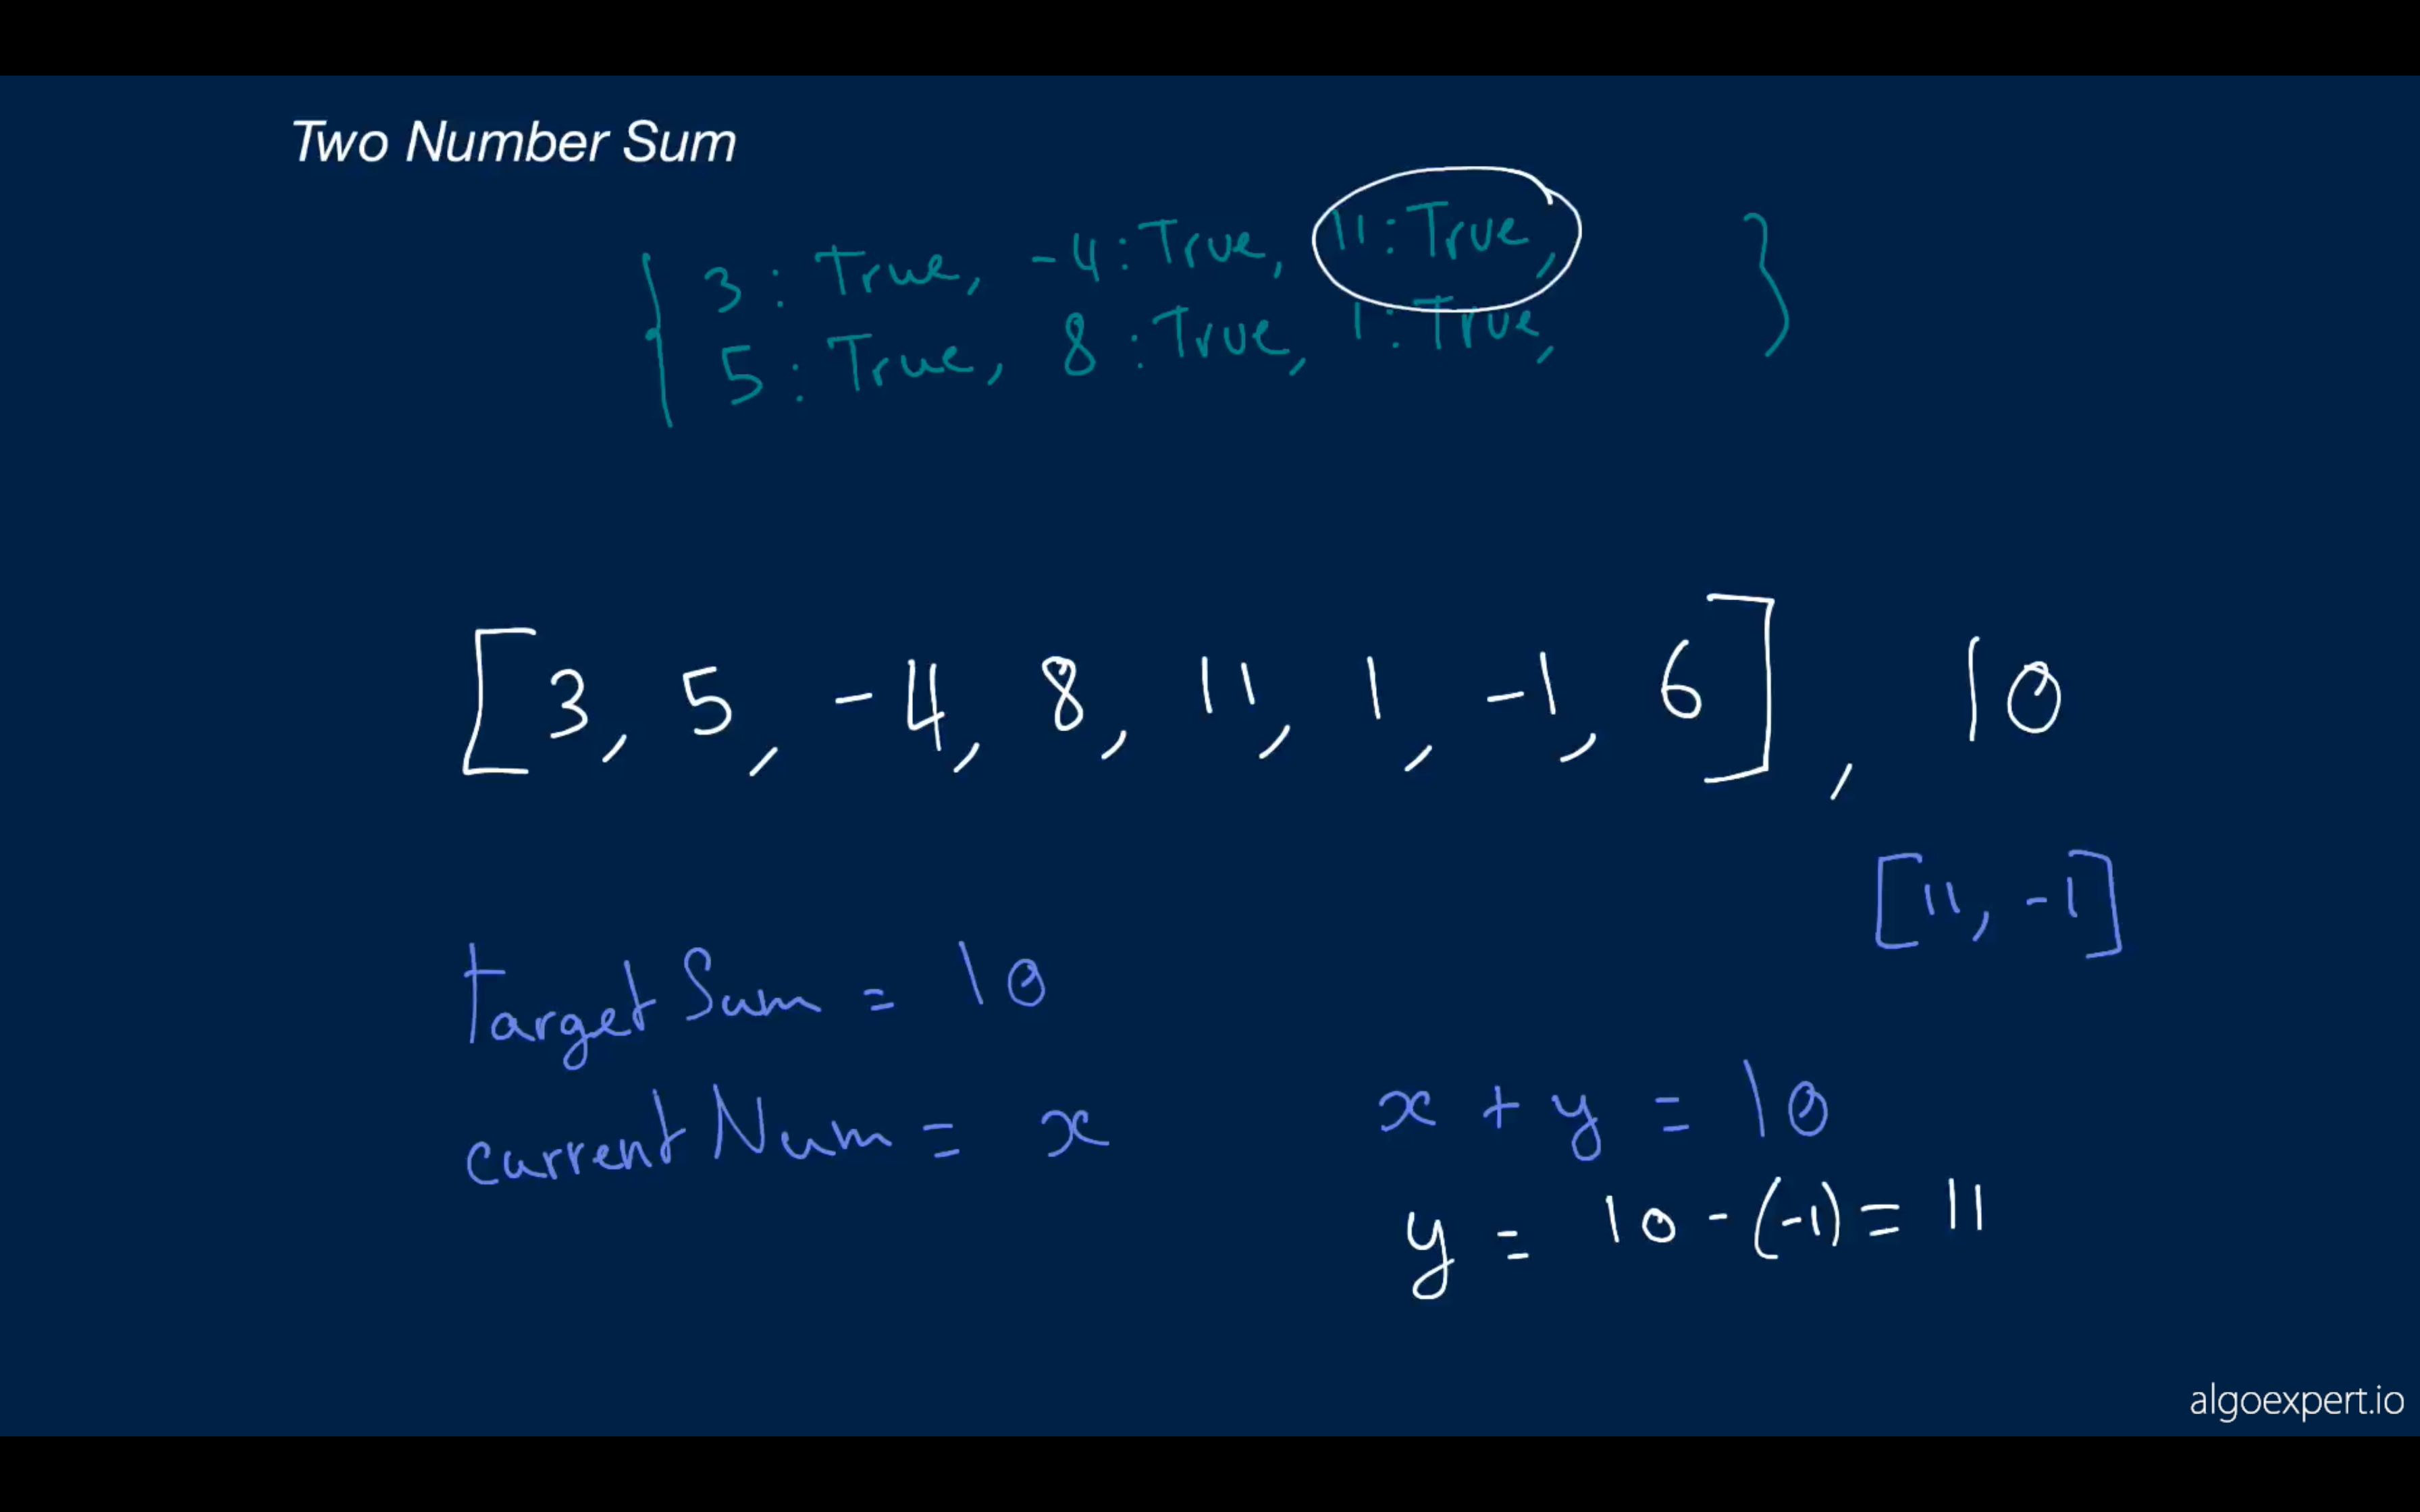 Two Number Sum
{ 3: True, -4: True, 11: True, }
5: True, 8: True, 1: True,
[3, 5, -4, 8, 11, 1, -1, 6], 10
[11, -1]
targetSum = 10
currentNum = x
x + y = 10
y = 10 - (-1) = 11
algoexpert.io